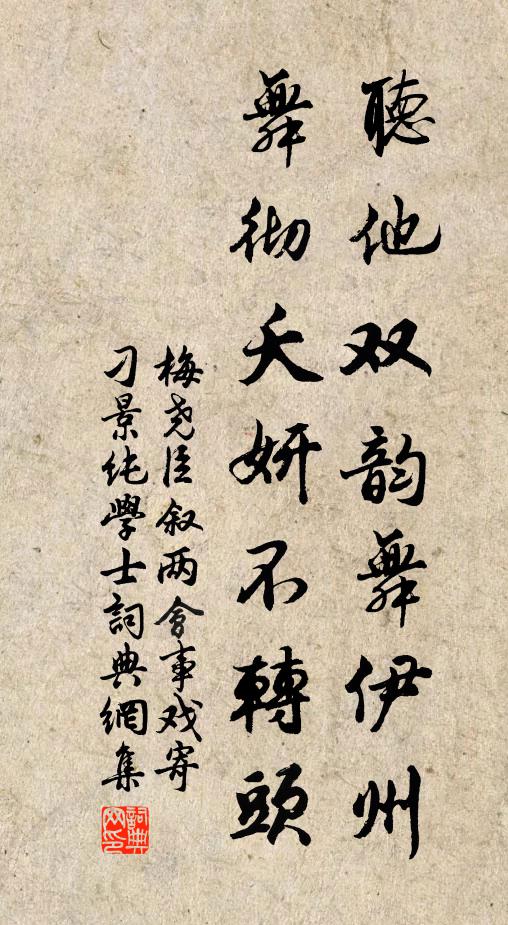 聽他双韵舞伊州
舞彻夭妍不轉頭
梅尧臣叙两會事戏寄
刁景纯學士詞典網集
詞典网印